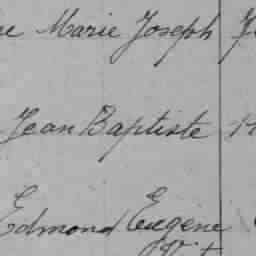 Marie Joseph
Jean Baptiste
Edmond Eugene